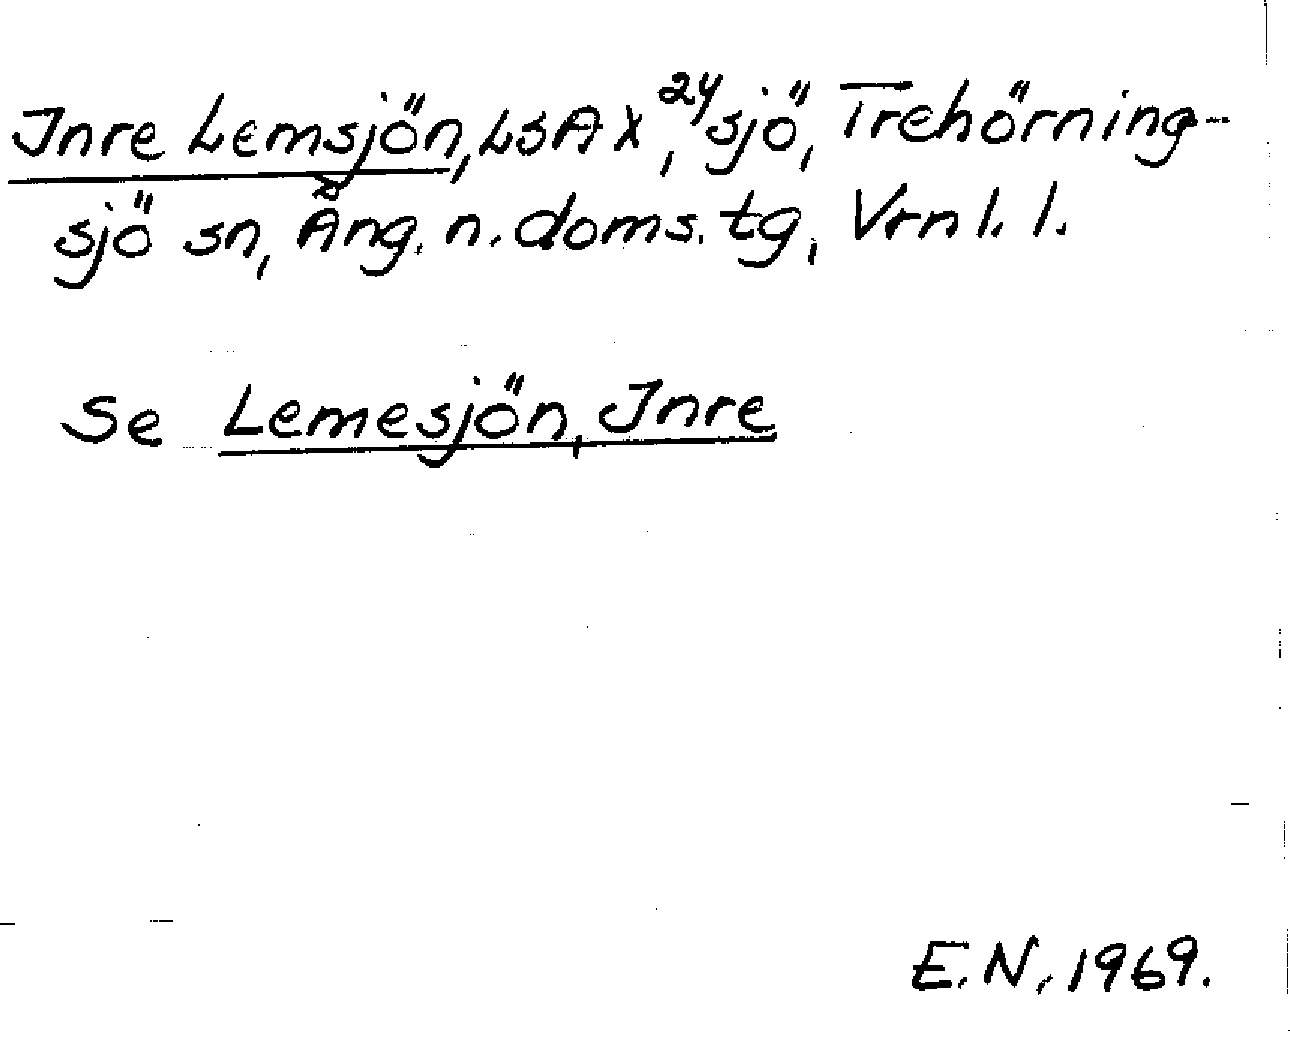 Inre Lemsjön, LSA X, 24 sjö, Trehörning-
sjö sn, Ång. n. doms. tg, Vrnl. l.
Se Lemesjön, Inre
E.N. 1969.